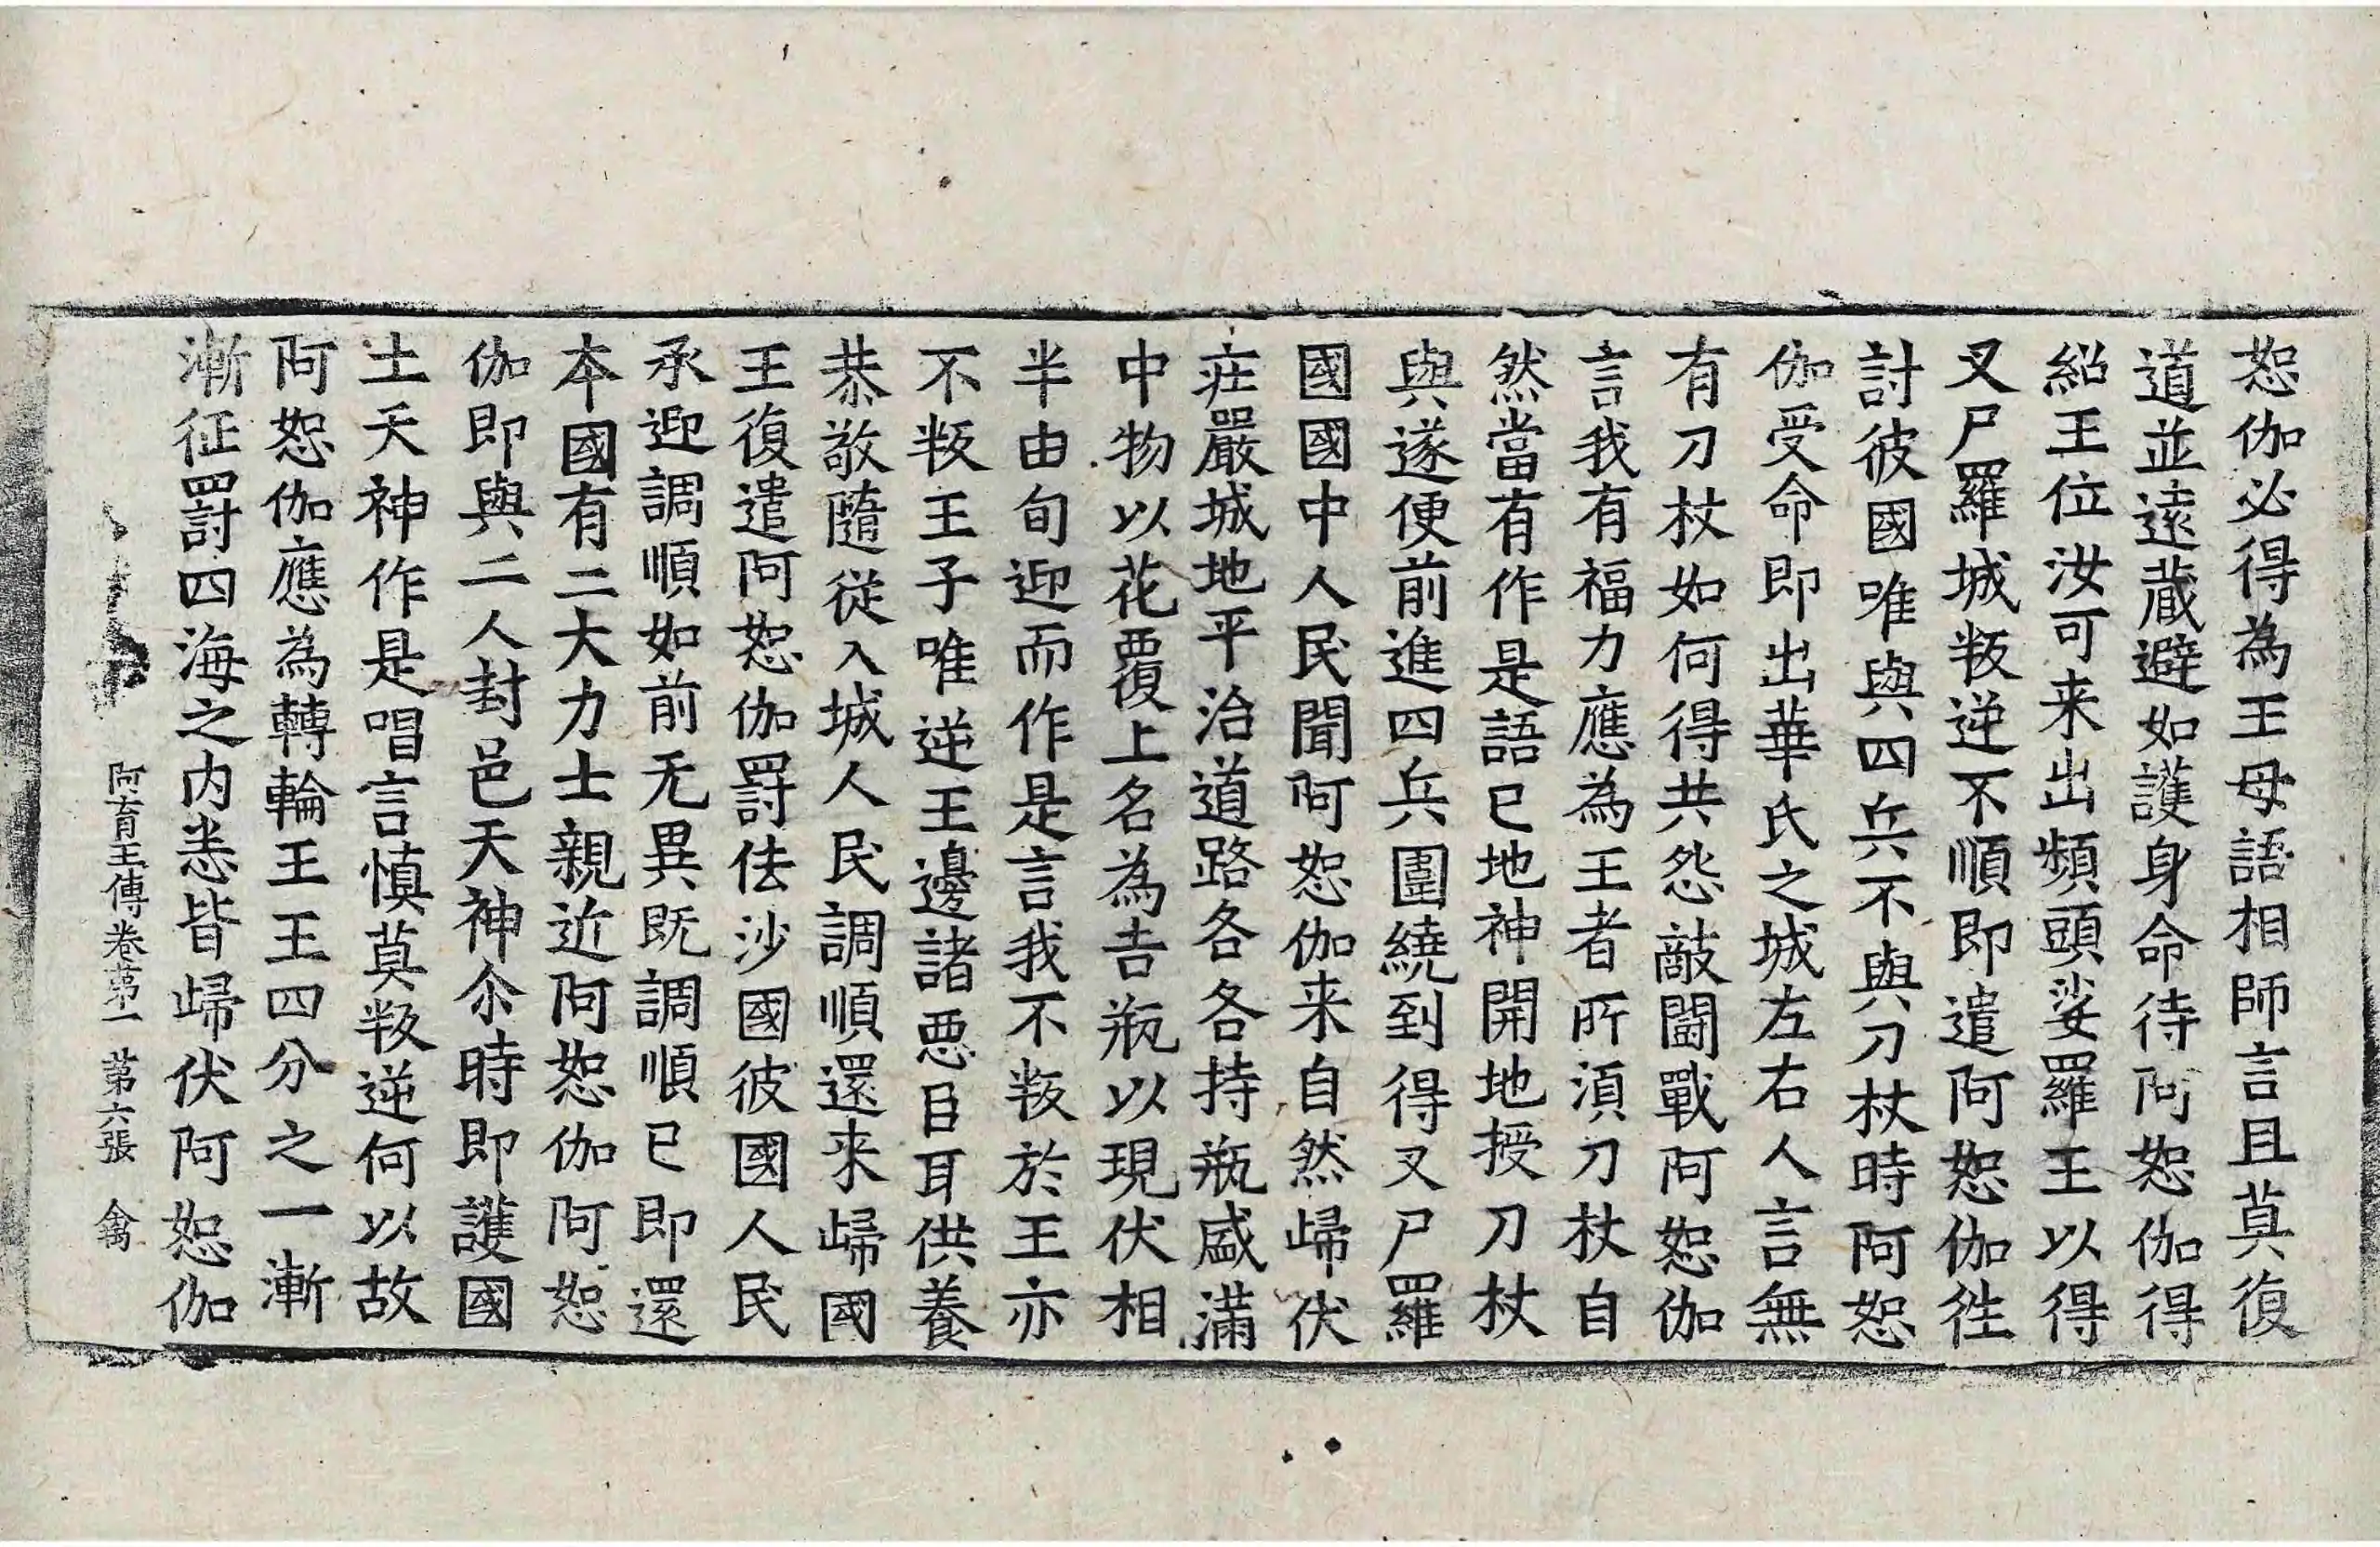 恕伽必得為王母語相師言且莫復
道並遠蔵避如護身命待阿恕伽得
紹王位汝可来出頻頭娑羅王以得
叉尸羅城叛逆不順即遣阿恕伽徃
討彼國唯與四兵不與刀杖時阿恕
伽受命即出華氏之城左右人言無
有刀杖如何得共怨敵鬪戰阿恕伽
言我有福力應為王者所湏刀杖自
然當有作是語已地神開地授刀杖
與遂便前進四兵圍繞到得叉尸羅
國國中人民聞阿恕伽来自然歸伏
庄嚴城地平治道路各各持瓶盛滿
中物以花覆上名為吉瓶以現伏相
半由旬迎而作是言我不叛於王亦
不叛王子唯逆王邊諸惡臣耳供養
恭敬隨從入城人民調順還来歸國
王復遣阿恕伽罸佉沙國彼國人民
承迎調順如前无異既調順已即還
本國有二大力士親近阿恕伽阿恕
伽即與二人封邑天神尒時即護國
土天神作是唱言慎莫叛逆何以故
阿恕伽應為轉輪王王四分之一漸
漸征罸四海之内悉皆歸伏阿恕伽
阿育王傳卷苐一 第六張 禽